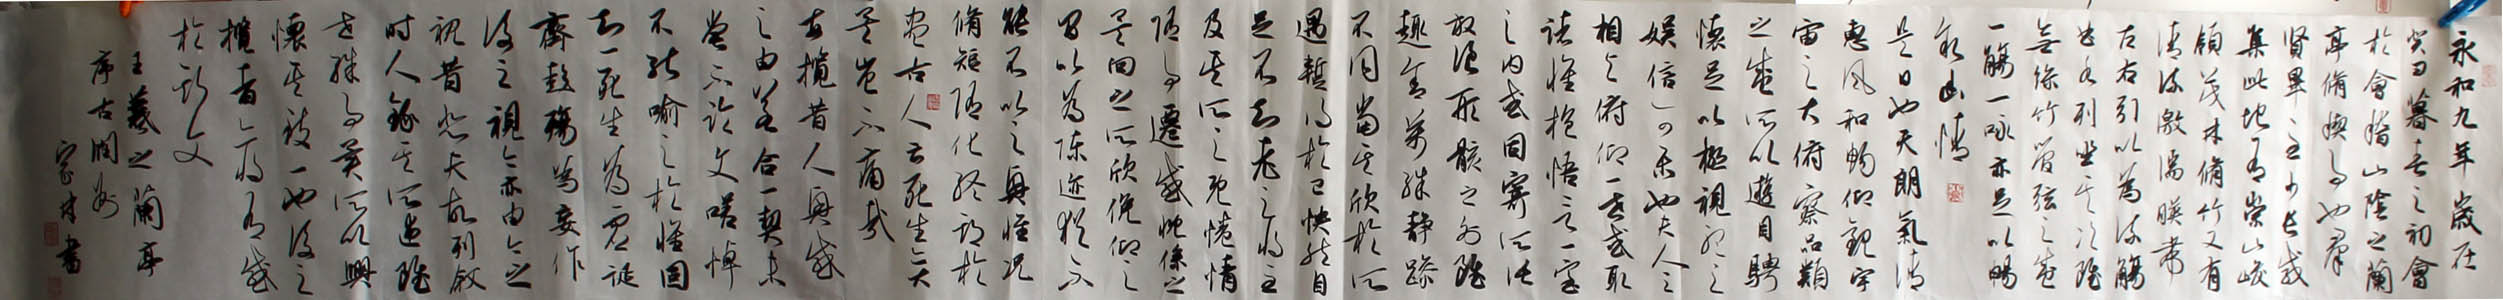 永和九年歲在
癸丑暮春之初會
於會稽山陰之蘭
亭脩禊事也羣
賢畢至少長咸
集此地有崇山峻
領茂林脩竹又有
清流激湍暎帶
左右引以為流觴
曲水列坐其次雖
無絲竹管弦之盛
一觴一詠亦足以暢
敘幽情
是日也天朗氣清
惠風和暢仰觀宇
宙之大俯察品類
之盛所以遊目騁
懷足以極視聽之
娛信可樂也夫人之
相與俯仰一世或取
諸懷抱悟言一室
之內或因寄所託
放浪形骸之外雖
趣舍萬殊靜躁
不同當其欣於所
遇暫得於己快然自
足不知老之將至
及其所之既惓情
隨事遷感慨係之
矣向之所欣俛仰之
間以為陳迹猶不
能不以之興懷況
脩短隨化終期於
盡古人云死生亦大
矣豈不痛哉
每攬昔人興感
之由若合一契未
嘗不臨文嗟悼
不能喻之於懷固
知一死生為虛誕
齊彭殤為妄作
後之視今亦由今之
視昔悲夫故列敘
時人錄其所述雖
世殊事異所以興
懷其致一也後之
攬者亦將有感
於斯文
王羲之蘭亭
序古潤州
家林書